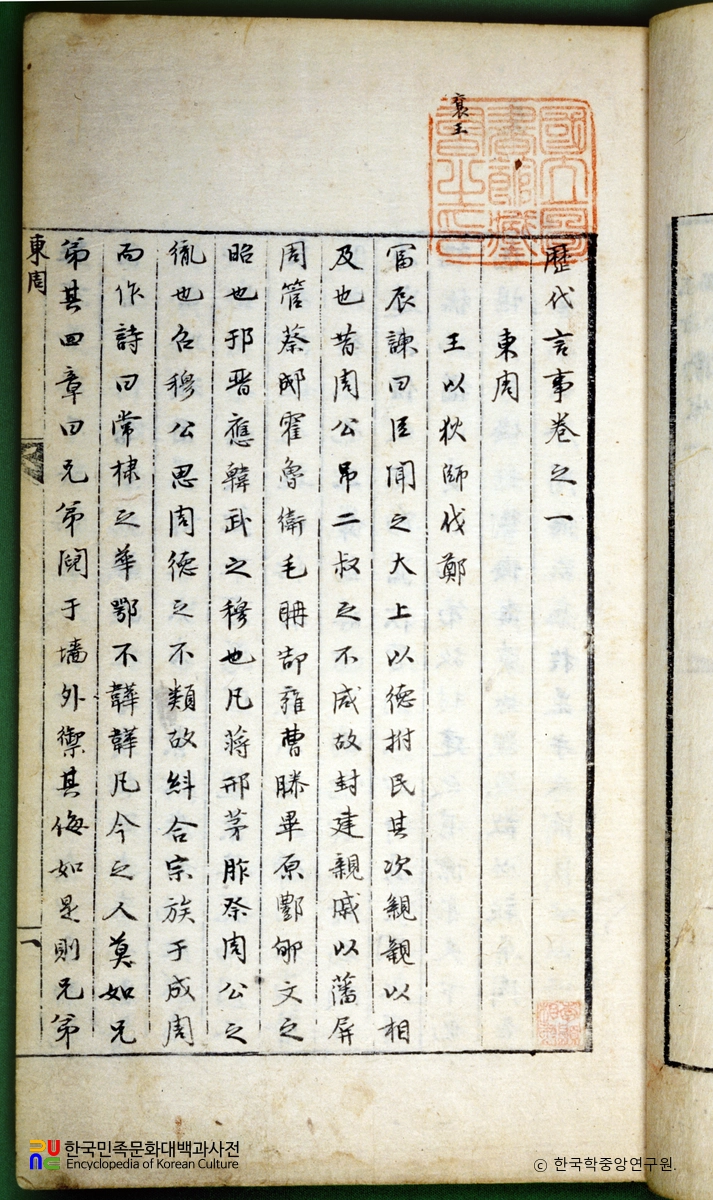 國立圖
書館藏
書之印
歷代言事卷之一
東周
襄王
王以狄師伐鄭
富辰諫曰臣聞之大上以德拊民其次親親以相
及也昔周公吊二叔之不咸故封建親戚以藩屏
周管蔡郕霍魯衛毛聃郜雍曹滕畢原酆郇文之
昭也邘晋應韓武之穆也凡蔣邢茅胙祭周公之
胤也召穆公思周德之不類故糾合宗族于成周
而作詩曰常棣之華鄂不韡韡凡今之人莫如兄
弟其四章曰兄弟鬩于墻外禦其侮如是則兄弟
東周
一
한국민족문화대백과사전
Encyclopedia of Korean Culture
ⓒ 한국학중앙연구원.